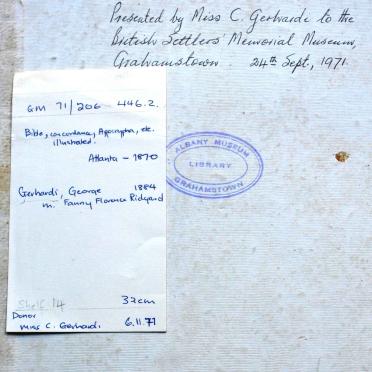 Presented by Miss C. Gerhardi to the
British Settlers' Memorial Museum,
Grahamstown. 24th Sept, 1971.
GM 71/206 446.2.
Bible, concordance, Apocrypha, etc.
illustrated.
Atlanta - 1870
Gerhardi, George 1884
m. Fanny Florence Ridgard
Shelf 14
32cm
Donor
Miss C. Gerhardi 6.11.71
ALBANY MUSEUM
LIBRARY
GRAHAMSTOWN